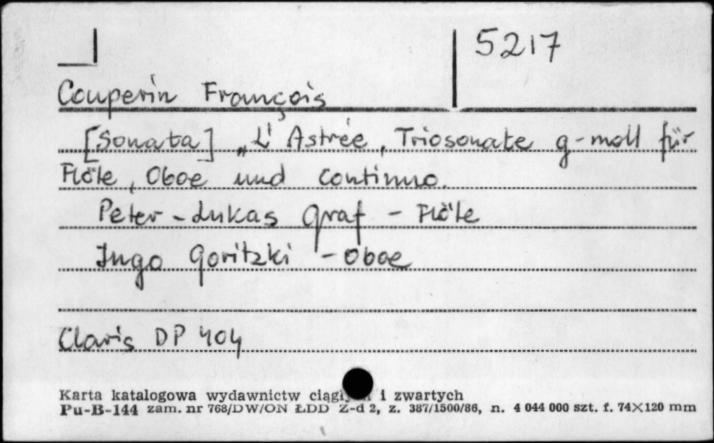 5217
Couperin François
[Sonata] „L' Astrée, Triosonate g-moll für
Flöte, Oboe und continuo.
Peter-Lukas Graf - Flöte
Ingo Goritzki - Oboe
Claves DP 404
Karta katalogowa wydawnictw i zwartych
Pu-B-144 zam. nr 768/DW/ON ŁDD Z-d 2, z. 387/1500/86, n. 4 044 000 szt. f. 74×120 mm